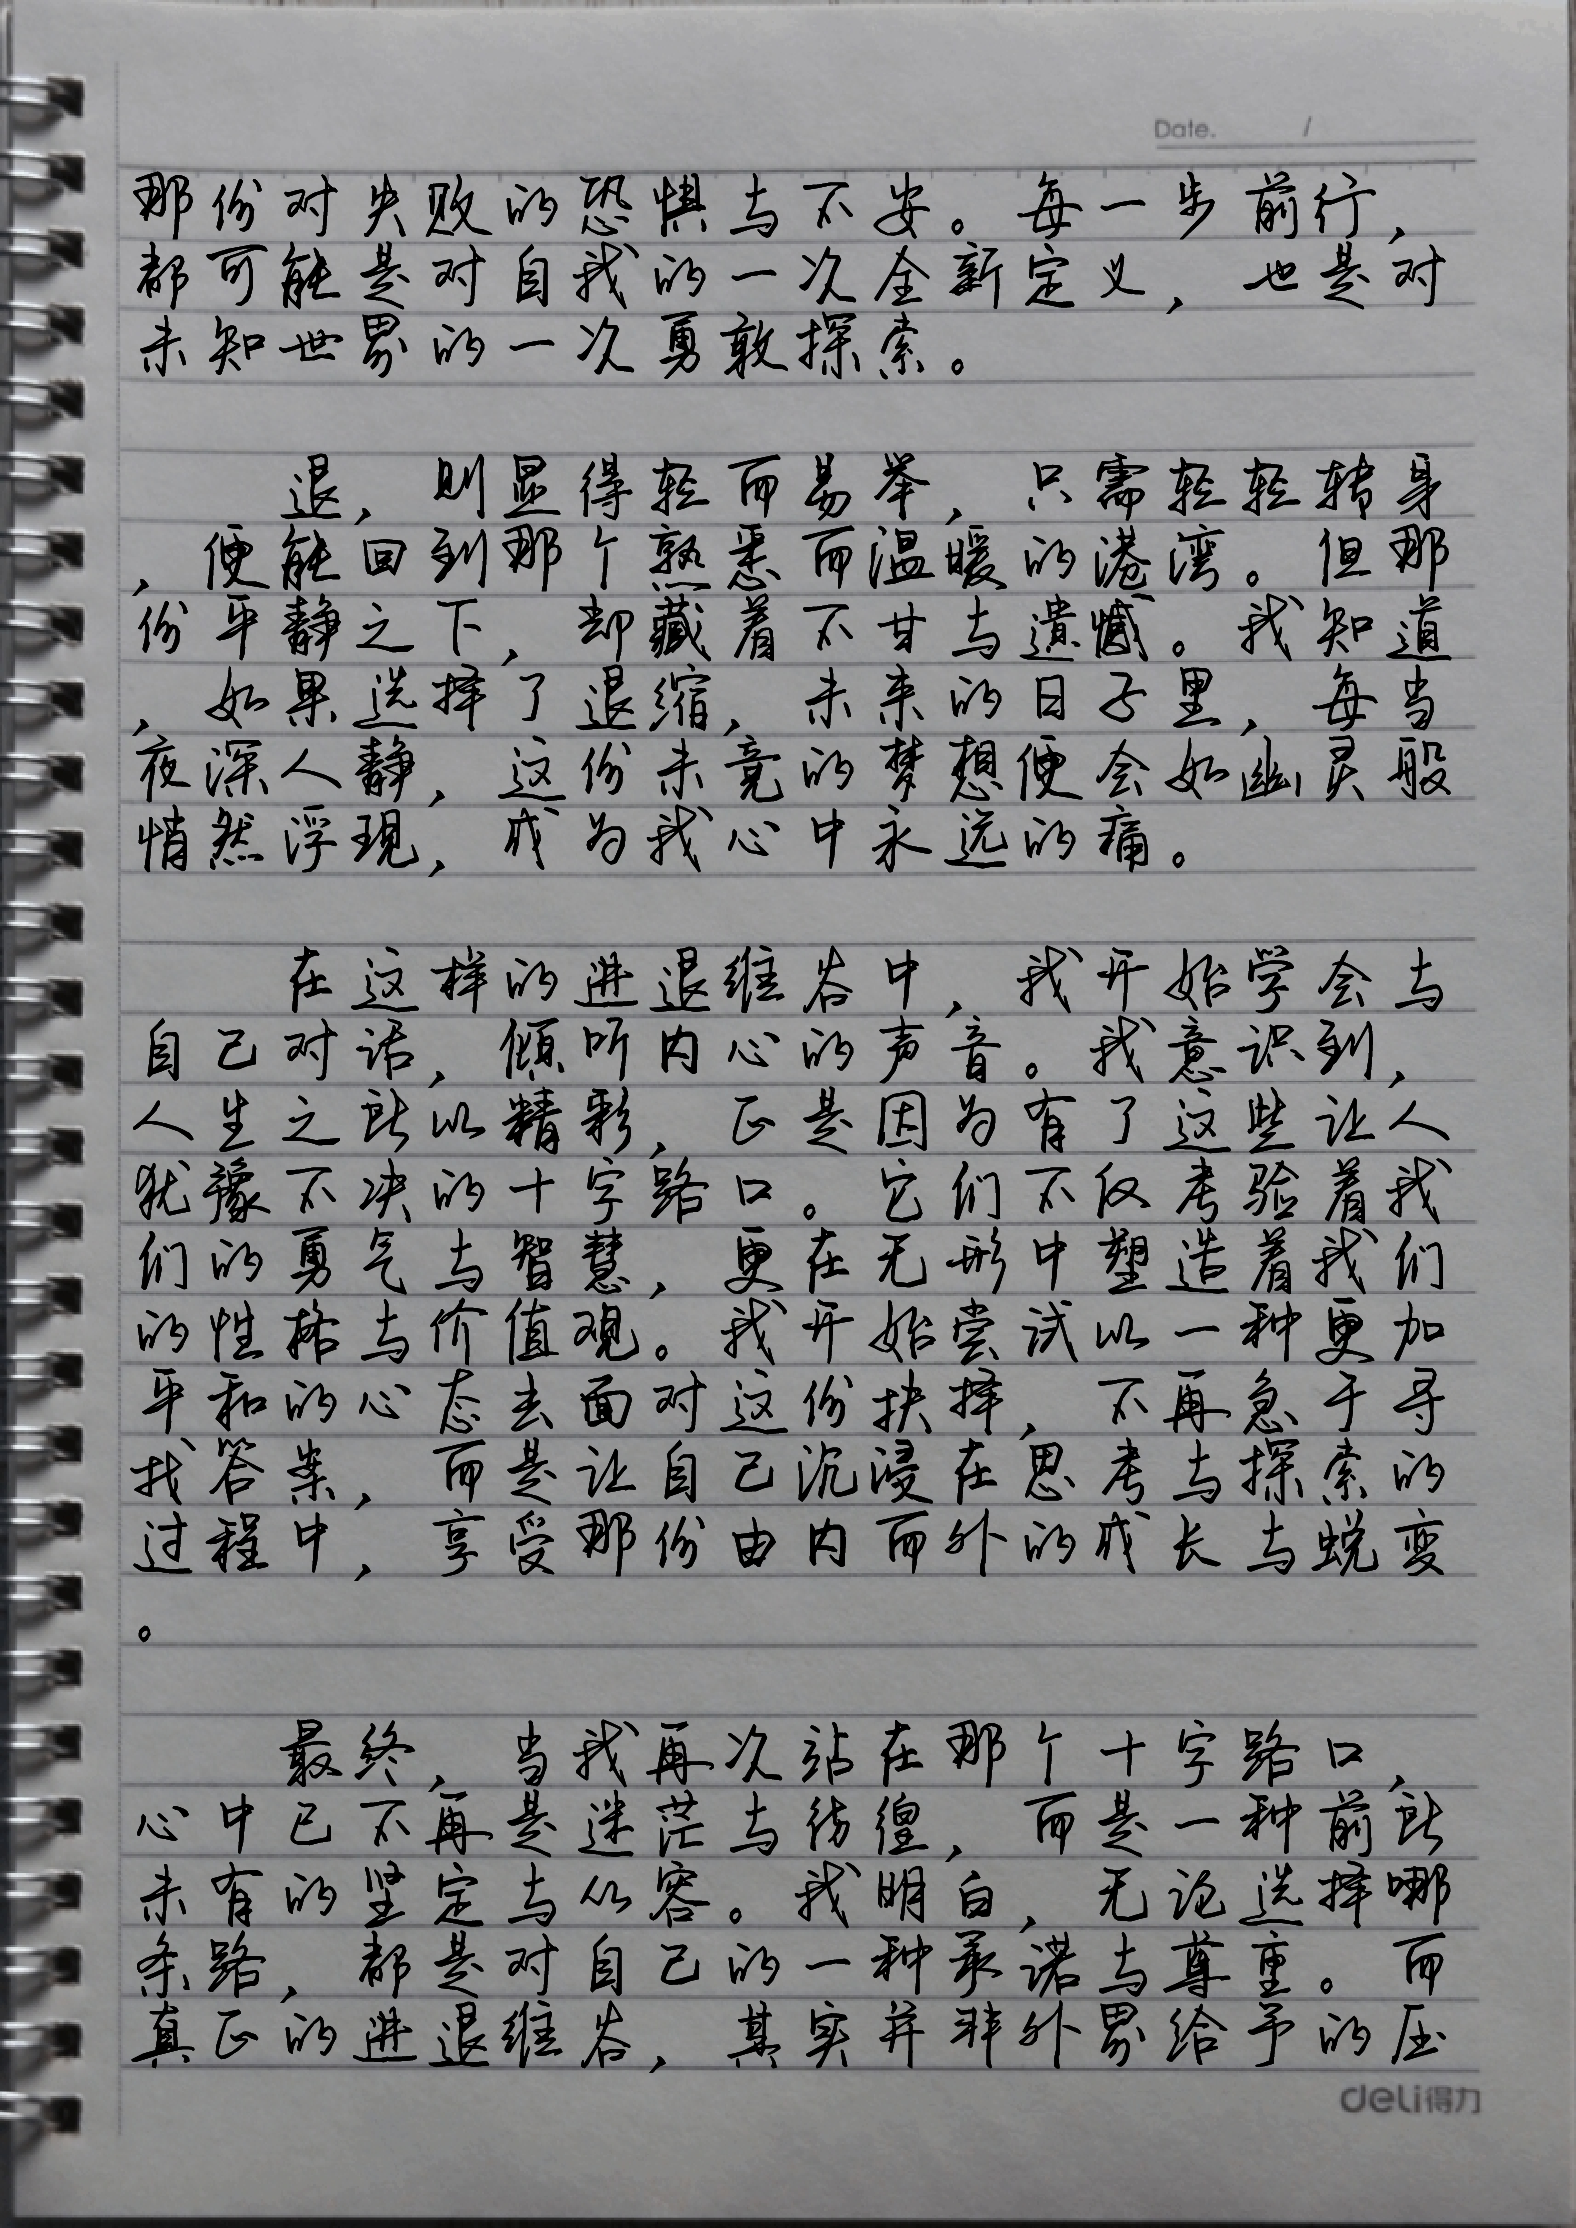 Date. /
那份对失败的恐惧与不安。每一步前行,
都可能是对自我的一次全新定义,也是对
未知世界的一次勇敢探索。
退,则显得轻而易举,只需轻轻转身
,便能回到那个熟悉而温暖的港湾。但那
份平静之下,却藏着不甘与遗憾。我知道
,如果选择了退缩,未来的日子里,每当
夜深人静,这份未竟的梦想便会如幽灵般
悄然浮现,成为我心中永远的痛。
在这样的进退维谷中,我开始学会与
自己对话,倾听内心的声音。我意识到,
人生之所以精彩,正是因为有了这些让人
犹豫不决的十字路口。它们不仅考验着我
们的勇气与智慧,更在无形中塑造着我们
的性格与价值观。我开始尝试以一种更加
平和的心态去面对这份抉择,不再急于寻
找答案,而是让自己沉浸在思考与探索的
过程中,享受那份由内而外的成长与蜕变
。
最终,当我再次站在那个十字路口,
心中已不再是迷茫与彷徨,而是一种前所
未有的坚定与从容。我明白,无论选择哪
条路,都是对自己的一种承诺与尊重。而
真正的进退维谷,其实并非外界给予的压
deli得力